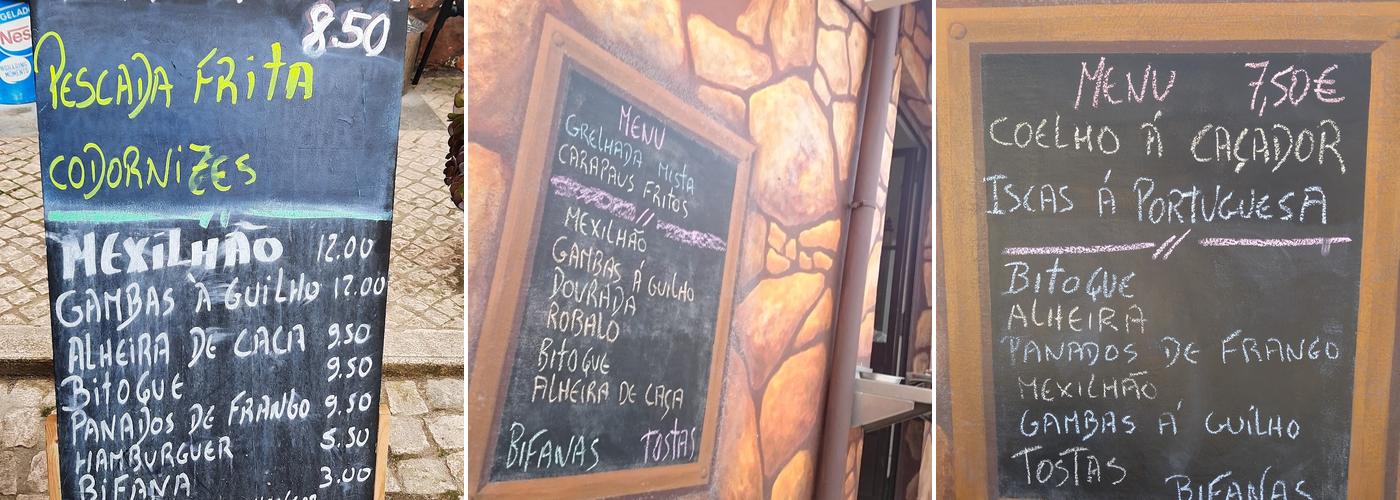 GELAD
Nes
8.50
PESCADA FRITA
CODORNIZES
MEXILHÃO 12.00
GAMBAS À GUILHO 12.00
ALHEIRA DE CACA 9.50
BITOQUE 9.50
PANADOS DE FRANGO 9.50
HAMBURGUER 5.50
BIFANA 3.00
MENU
GRELHADA MISTA
CARAPAUS FRITOS
MEXILHÃO
GAMBAS Á GUILHO
DOURADA
ROBALO
BITOQUE
ALHEIRA DE CAÇA
BIFANAS TOSTAS
MENU 7,50€
COELHO Á CAÇADOR
ISCAS Á PORTUGUESA
BITOQUE
ALHEIRA
PANADOS DE FRANGO
MEXILHÃO
GAMBAS Á GUILHO
TOSTAS
BIFANAS